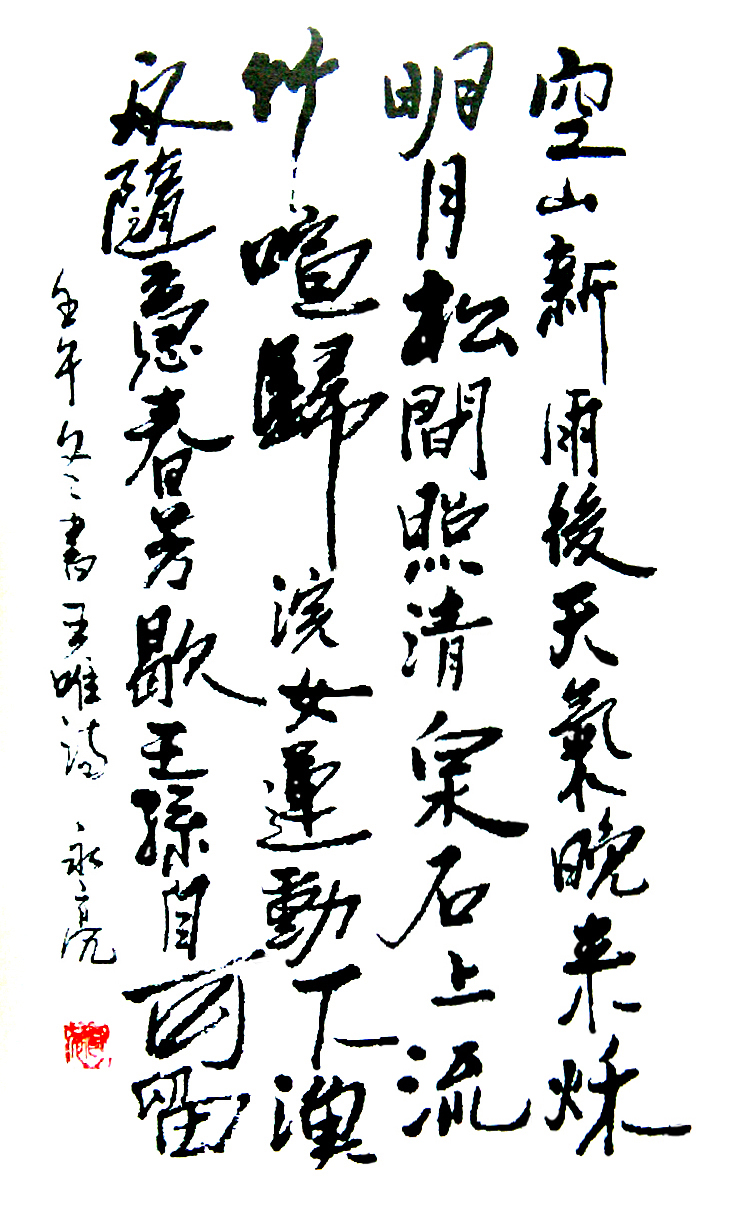 空山新雨後天氣晚来秌
明月松間照清泉石上流
竹喧歸浣女蓮動下漁
舟隨意春芳歇王孫自可留
壬午冬書王唯詩 永亮